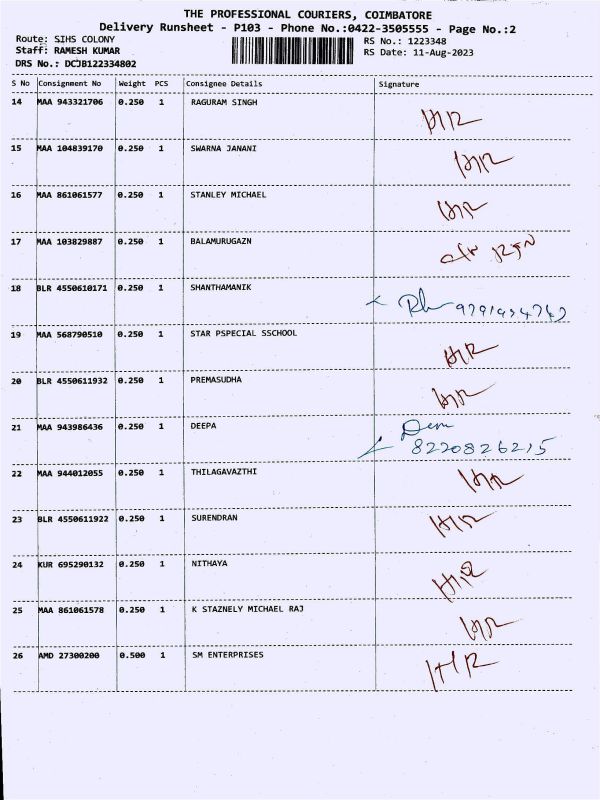 THE PROFESSIONAL COURIERS, COIMBATORE
Delivery Runsheet - P103 - Phone No.:0422-3505555 - Page No.:2
Route: SIHS COLONY RS No.: 1223348
Staff: RAMESH KUMAR RS Date: 11-Aug-2023
DRS No.: DCJB122334802
S No Consignment No Weight PCS Consignee Details Signature
14 MAA 943321706 0.250 1 RAGURAM SINGH
15 MAA 104839170 0.250 1 SWARNA JANANI
16 MAA 861061577 0.250 1 STANLEY MICHAEL
17 MAA 103829887 0.250 1 BALAMURUGAZN
18 BLR 4550610171 0.250 1 SHANTHAMANIK
19 MAA 568790510 0.250 1 STAR PSPECIAL SSCHOOL
20 BLR 4550611932 0.250 1 PREMASUDHA
21 MAA 943986436 0.250 1 DEEPA
8220826215
22 MAA 944012055 0.250 1 THILAGAVAZTHI
23 BLR 4550611922 0.250 1 SURENDRAN
24 KUR 695290132 0.250 1 NITHAYA
25 MAA 861061578 0.250 1 K STAZNELY MICHAEL RAJ
26 AMD 27300200 0.500 1 SM ENTERPRISES